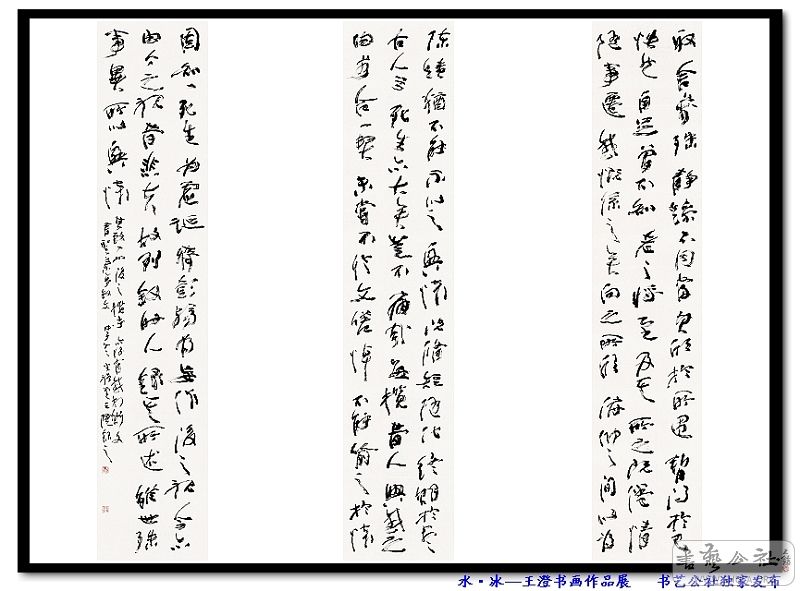 取舍萬殊靜躁不同當其欣於所遇暫得於己
快然自足曾不知老之將至及其所之既倦情
隨事遷感慨係之矣向之所欣俯仰之間以為
陳跡猶不能不以之興懷況脩短隨化終期於盡
古人云死生亦大矣豈不痛哉每攬昔人興感之
由若合一契未嘗不臨文嗟悼不能喻之於懷
固知一死生為虛誕齊彭殤為妄作後之視今亦
由今之視昔悲夫故列敘時人錄其所述雖世殊
事異所以興懷其致一也後之攬者亦將有感於斯文
书艺公社
水·冰—王澄书画作品展 书艺公社独家发布